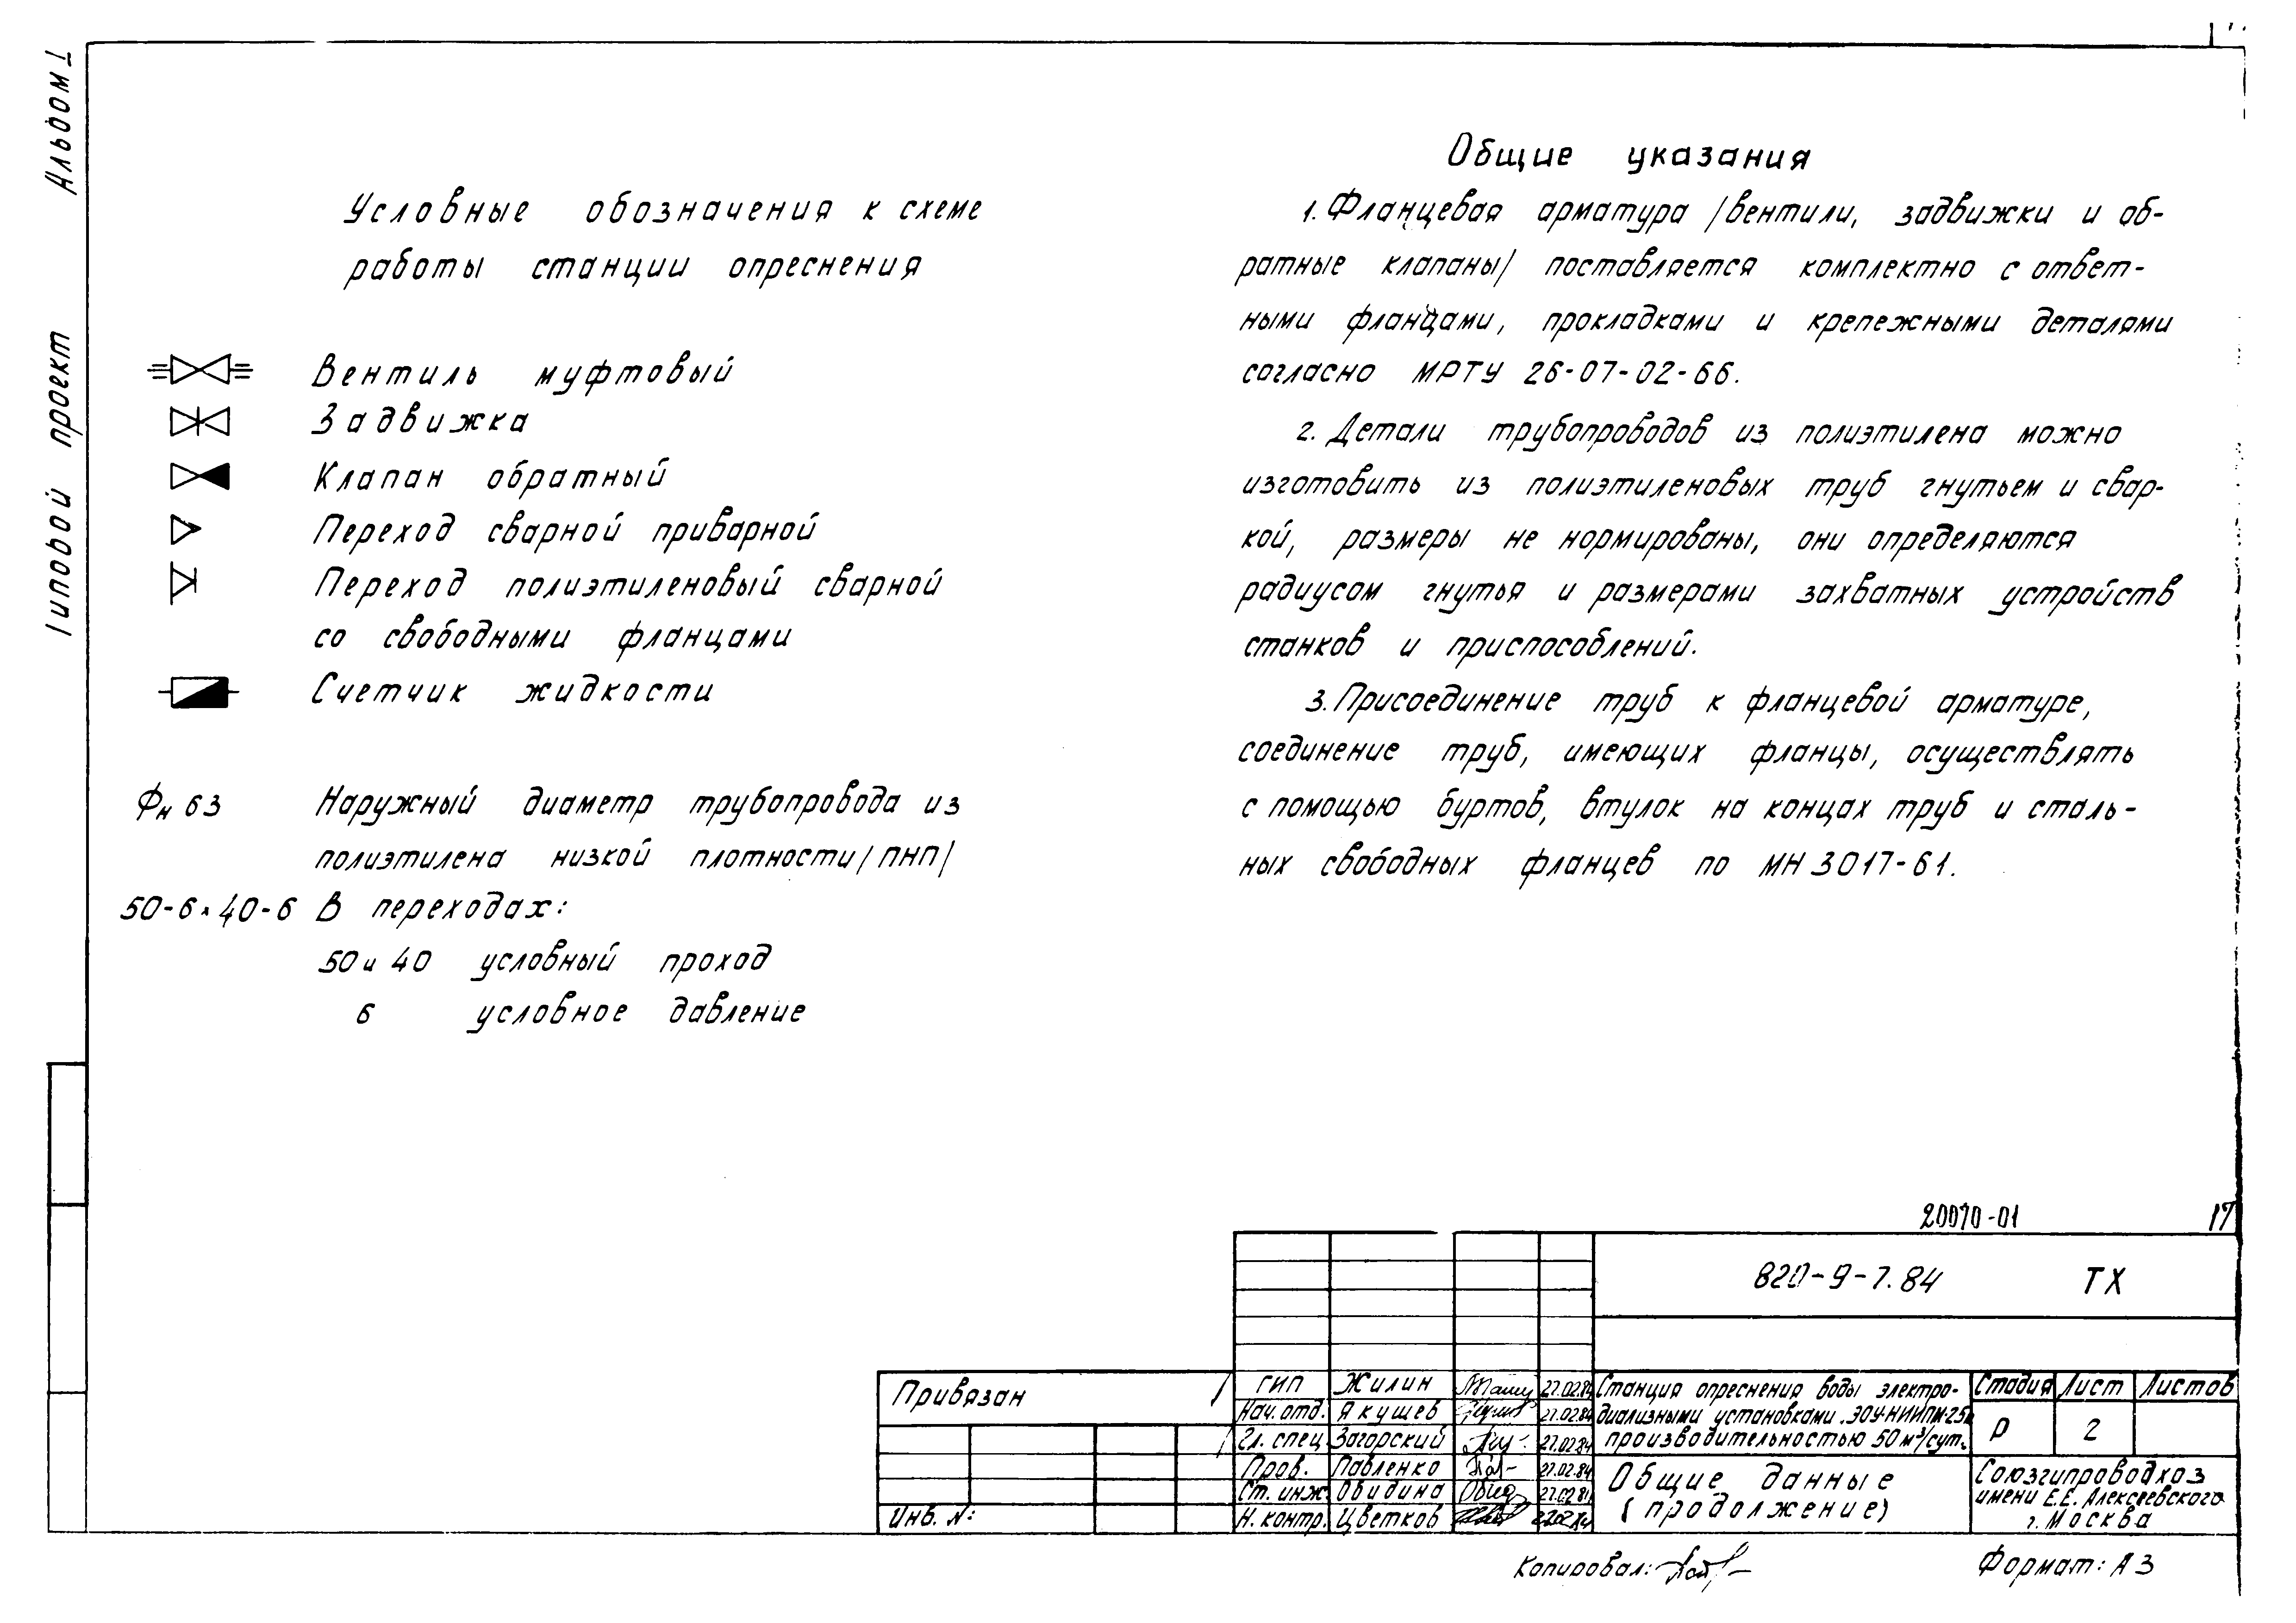 Альбом I
Типовой проект
Условные обозначения к схеме
работы станции опреснения
Вентиль муфтовый
Задвижка
Клапан обратный
Переход сварной приварной
Переход полиэтиленовый сварной
со свободными фланцами
Счетчик жидкости
Фн 63 Наружный диаметр трубопровода из
полиэтилена низкой плотности /ПНП/
50-6 x 40-6 В переходах:
50 и 40 условный проход
6 условное давление
Общие указания
1. Фланцевая арматура /вентили, задвижки и об-
ратные клапаны/ поставляется комплектно с ответ-
ными фланцами, прокладками и крепежными деталями
согласно МРТУ 26-07-02-66.
2. Детали трубопроводов из полиэтилена можно
изготовить из полиэтиленовых труб гнутьем и свар-
кой, размеры не нормированы, они определяются
радиусом гнутья и размерами захватных устройств
станков и приспособлений.
3. Присоединение труб к фланцевой арматуре,
соединение труб, имеющих фланцы, осуществлять
с помощью буртов, втулок на концах труб и сталь-
ных свободных фланцев по МН 3017-61.
20070-01 17
820-9-7.84 ТХ
Привязан
Инв. №:
ГИП Жилин 27.02.84
Нач. отд. Якушев 27.02.84
Гл. спец. Загорский 27.02.84
Пров. Павленко 27.02.84
Ст. инж. Овидина 27.02.84
Н. контр. Цветков
Станция опреснения воды электро-
диализными установками „ЭОУ-НИИПМ-25"
производительностью 50 м³/сут.
Стадия Лист Листов
Р 2
Общие данные
(продолжение)
Союзгипроводхоз
имени Е.Е. Алексеевского
г. Москва
Копировал:
Формат: А3